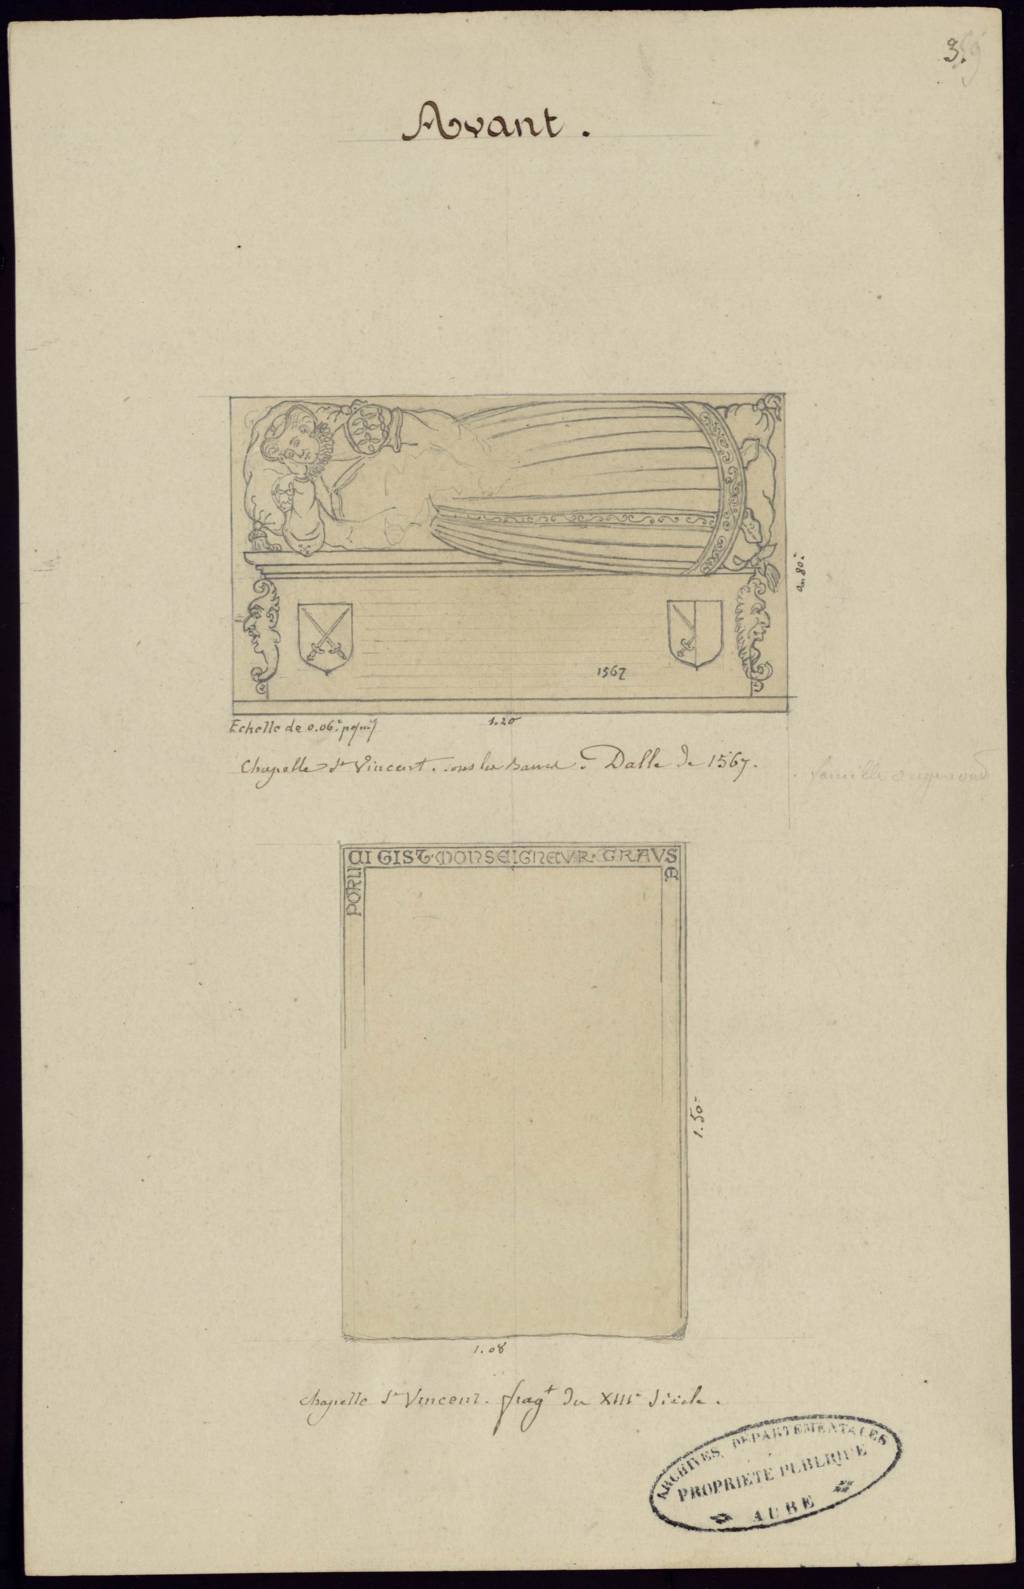 3.
Avant.
1567
0m 80c
Echelle de 0.06c p. m
1.20
Chapelle St Vincent. sous les bancs. Dalle de 1567.
famille
CI GIST MONSEIGNEVR GRAVS
E
PORU
1.50
1.08
chapelle St Vincent. fragt du XIIIe Siècle.
ARCHIVES DÉPARTEMENTALES
PROPRIÉTÉ PUBLIQUE
AUBE